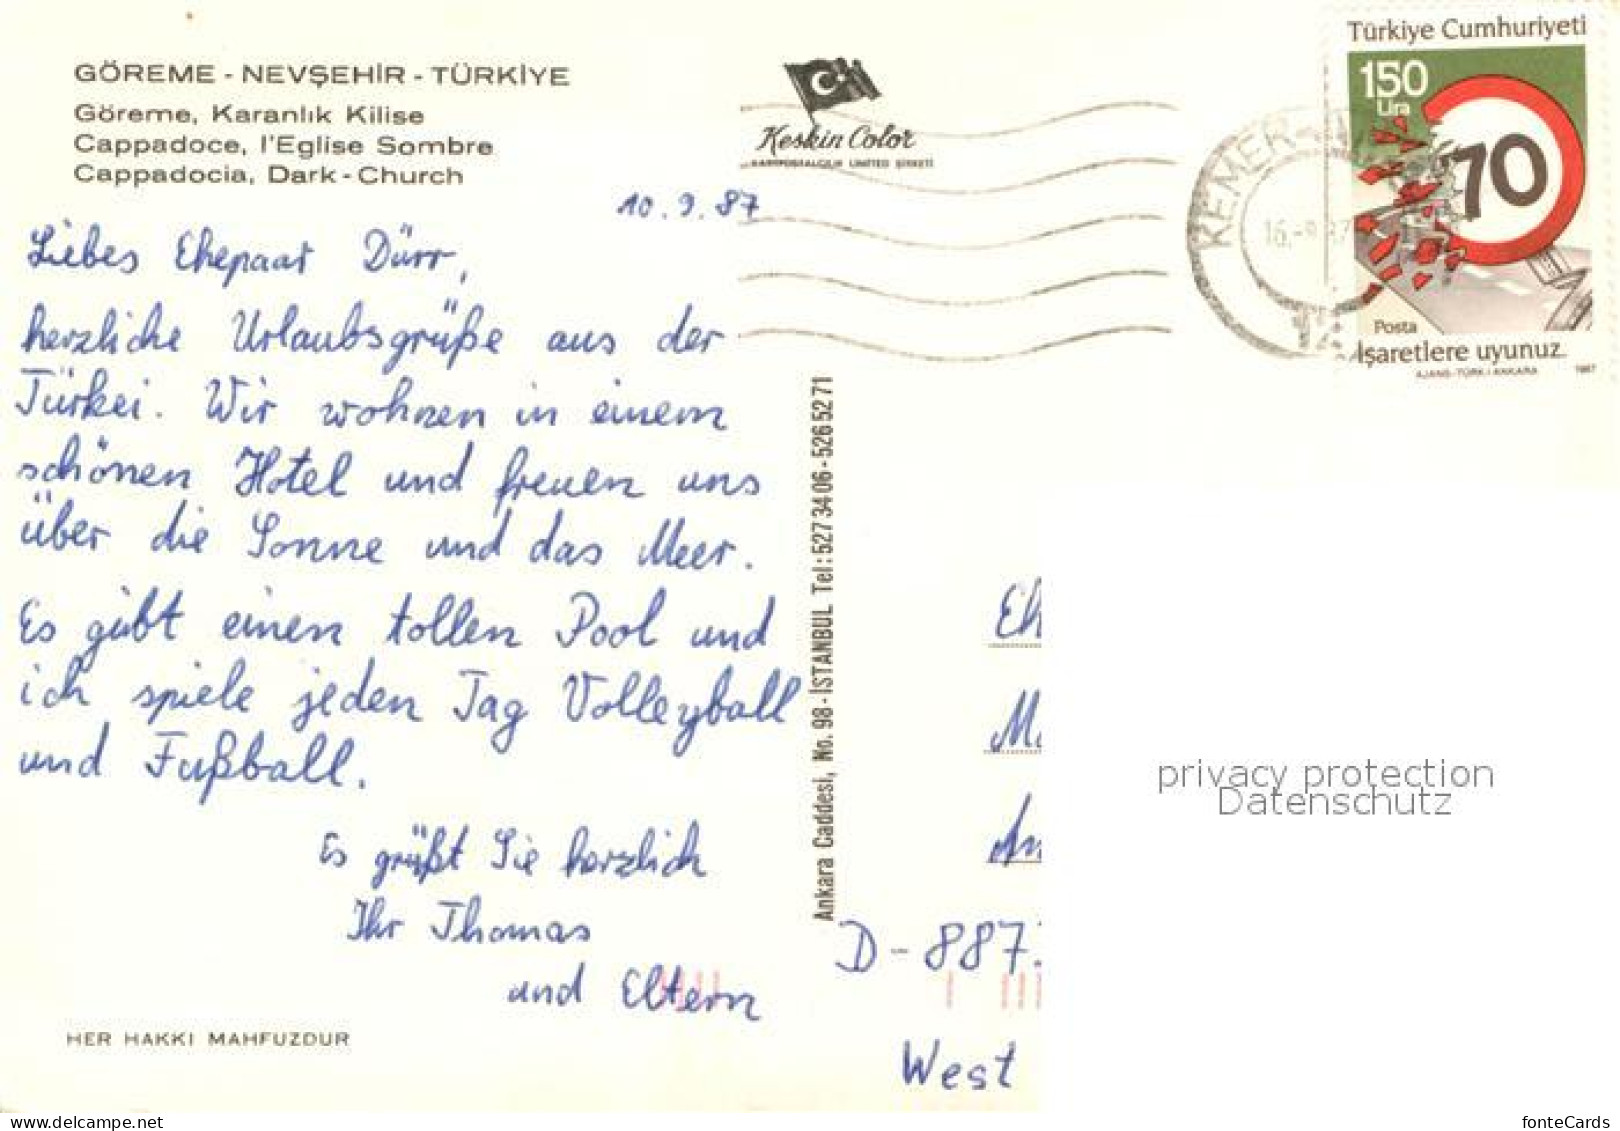 GÖREME - NEVŞEHİR - TÜRKİYE
Göreme, Karanlık Kilise
Cappadoce, l'Eglise Sombre
Cappadocia, Dark - Church
Keskin Color
KARTPOSTALCILIK LIMITED ŞİRKETİ
KEMER-
16.-9.87
Türkiye Cumhuriyeti
150
Lira
70
Posta
İşaretlere uyunuz.
AJANS-TÜRK / ANKARA 1987
10.9.87
Liebes Ehepaar Dürr,
herzliche Urlaubsgrüße aus der
Türkei. Wir wohnen in einem
schönen Hotel und freuen uns
über die Sonne und das Meer.
Es gibt einen tollen Pool und
ich spiele jeden Tag Volleyball
und Fußball.
Es grüßt Sie herzlich
Ihr Thomas
und Eltern
HER HAKKI MAHFUZDUR
Ankara Caddesi, No. 98 - İSTANBUL Tel: 527 34 06 - 526 52 71
Eh
D - 887
West
privacy protection
Datenschutz
fonteCards